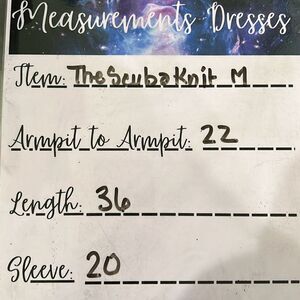 Measurements Dresses
Item: The Scuba Knit M
Armpit to Armpit: 22
Length: 36
Sleeve: 20